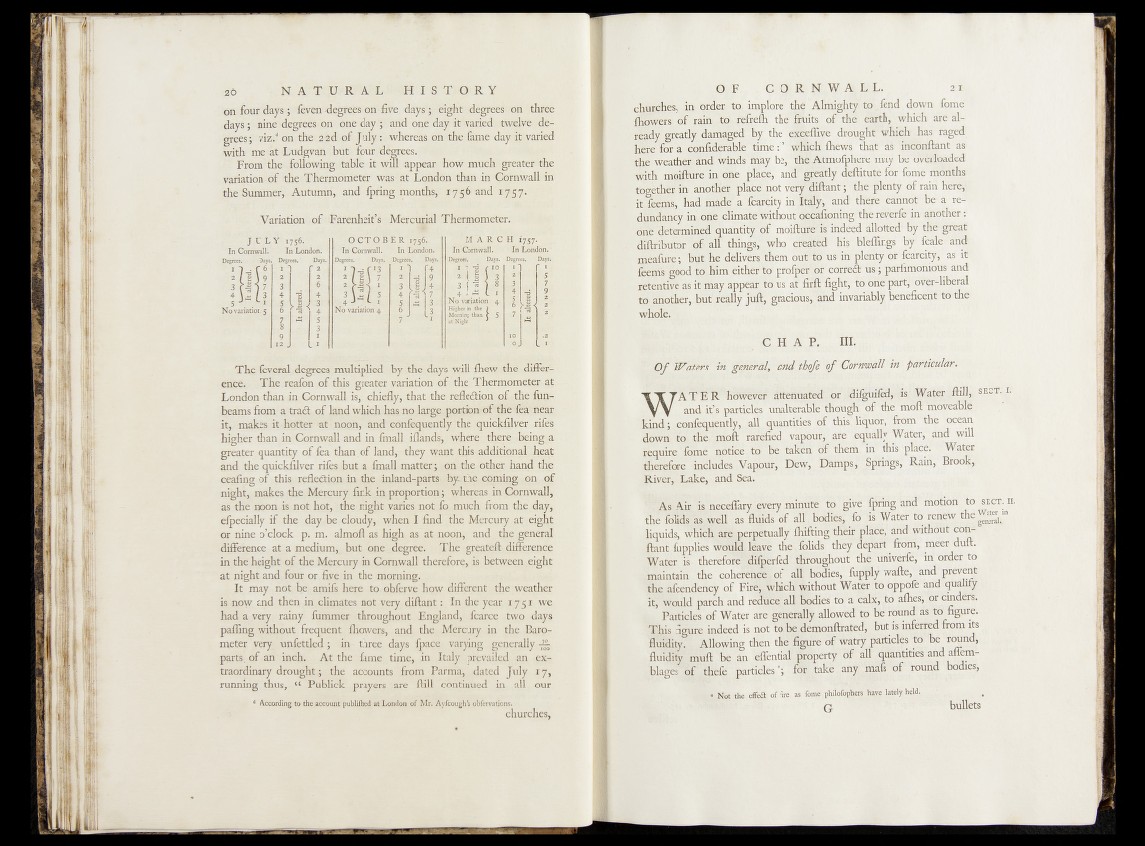 20 NATURAL HISTORY
on four days ; ſeven degrees on five days ; eight degrees on three
days ; nine degrees on one day ; and one day it varied twelve de-
grees ; viz. on the 22d of July : whereas on the ſame day it varied
with me at Ludgvan but four degrees.
From the following table it will appear how much greater the
variation of the Thermometer was at London than in Cornwall in
the Summer, Autumn, and ſpring months, 1756 and 1757.
Variation of Farenheit's Mercurial Thermometer.
JULY 1756. OCTOBER 1756. MARCH 1757.
In Cornwall. In London. In Cornwall. In London. In Cornwall. In London.
Degrees. Days. Degrees. Days. Degrees. Days. Degrees. Days. Degrees. Days. Degrees. Days.
1 6 1 2 1 13 1 4 1 10 1 1
2 9 2 2 2 7 2 9 2 3 2 5
3 7 3 6 2 1 3 4 3 8 3 7
4 3 4 4 3 5 4 7 4 1 4 9
5 1 5 3 4 1 5 3 No variation 4 5 2
No variation 5 6 4 No variation 4 6 3 Higher in the 6 2
7 5 7 1 Morning than 5 7 2
8 3 at Night
9 1 10 2
12 1 0 1
It altered. It altered. It altered. It altered. It altered. It altered.
The ſeveral degrees multiplied by the days will ſhew the differ-
ence. The reaſon of this greater variation of the Thermometer at
London than in Cornwall is, chiefly, that the reflection of the ſun-
beams from a tract of land which has no large portion of the ſea near
it, makes it hotter at noon, and conſequently the quickſilver riſes
higher than in Cornwall and in ſmall iſlands, where there being a
greater quantity of ſea than of land, they want this additional heat
and the quickſilver riſes but a ſmall matter ; on the other hand the
ceaſing of this reflection in the inland-parts by the coming on of
night, makes the Mercury ſink in proportion ; whereas in Cornwall,
as the noon is not hot, the night varies not ſo much from the day,
eſpecially if the day be cloudy, when I find the Mercury at eight
or nine o'clock p. m. almoſt as high as at noon, and the general
difference at a medium, but one degree. The greateſt difference
in the height of the Mercury in Cornwall therefore, is between eight
at night and four or five in the morning.
It may not be amiſs here to obſerve how different the weather
is now and then in climates not very diſtant : In the year 1751 we
had a very rainy ſummer throughout England, ſcarce two days
paſſing without frequent ſhowers, and the Mercury in the Baro-
meter very unſettled ; in three days ſpace varying generally
parts of an inch. At the ſame time, in Italy prevailed an ex-
traordinary drought ; the accounts from Parma, dated July 17,
running thus, “ Publick prayers are ſtill continued in all our
According to the account publiſhed at London of Mr. Ayſcough's obſervations.
churches,
OF CORNWALL. 21
churches, in order to implore the Almighty to ſend down ſome
ſhowers of rain to refreſh the fruits of the earth, which are al-
ready greatly damaged by the exceſſive drought which has raged
here for a conſiderable time :' which ſhews that as inconſtant as
the weather and winds may be, the Atmoſphere may be overloaded
with moiſture in one place, and greatly deſtitute for ſome months
together in another place not very diſtant ; the plenty of rain here,
it ſeems, had made a ſcarcity in Italy, and there cannot be a re-
dundancy in one climate without occaſioning the reverſe in another :
one determined quantity of moiſture is indeed allotted by the great
diſtributor of all things, who created his bleſſings by ſcale and
meaſure ; but he delivers them out to us in plenty or ſcarcity, as it
ſeems good to him either to proſper or correct us ; parſimonious and
retentive as it may appear to us at firſt ſight, to one part, over-liberal
to another, but really juſt, gracious, and invariably beneficent to the
whole.
CHAP. III.
Of Waters in general, and thoſe of Cornwall in particular.
WATER however attenuated or diſguiſed, is Water ſtill, SECT. I.
and it's particles unalterable though of the moſt moveable
kind ; conſequently, all quantities of this liquor, from the ocean
down to the moſt rarefied vapour, are equally Water, and will
require ſome notice to be taken of them in this place. Water
therefore includes Vapour, Dew, Damps, Springs, Rain, Brook,
River, Lake, and Sea.
As Air is neceſſary every minute to give ſpring and motion to SECT. II.
the ſolids as well as fluids of all bodies, ſo is Water to renew the Water in
liquids, which are perpetually ſhifting their place, and without con- general.
ſtant ſupplies would leave the ſolids they depart from, meer duſt.
Water is therefore diſperſed throughout the univerſe, in order to
maintain the coherence of all bodies, ſupply waſte, and prevent
the aſcendency of Fire, which without Water to oppoſe and qualify
it, would parch and reduce all bodies to a calx, to aſhes, or cinders.
Particles of Water are generally allowed to be round as to figure.
This figure indeed is not to be demonſtrated, but is inferred from its
fluidity. Allowing then the figure of watry particles to be round,
fluidity muſt be an eſſential property of all quantities and aſſem-
blages of theſe particles ; for take any maſs of round bodies,
Not the effect of fire as ſome philoſophers have lately held.
G bullets